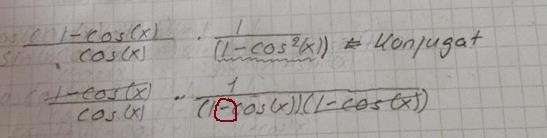 (1-cos(x))/cos(x) · 1/(1-cos²(x)) ⇐ Konjugat
(1-cos(x))/cos(x) · 1/((1-cos(x))(1-cos(x)))